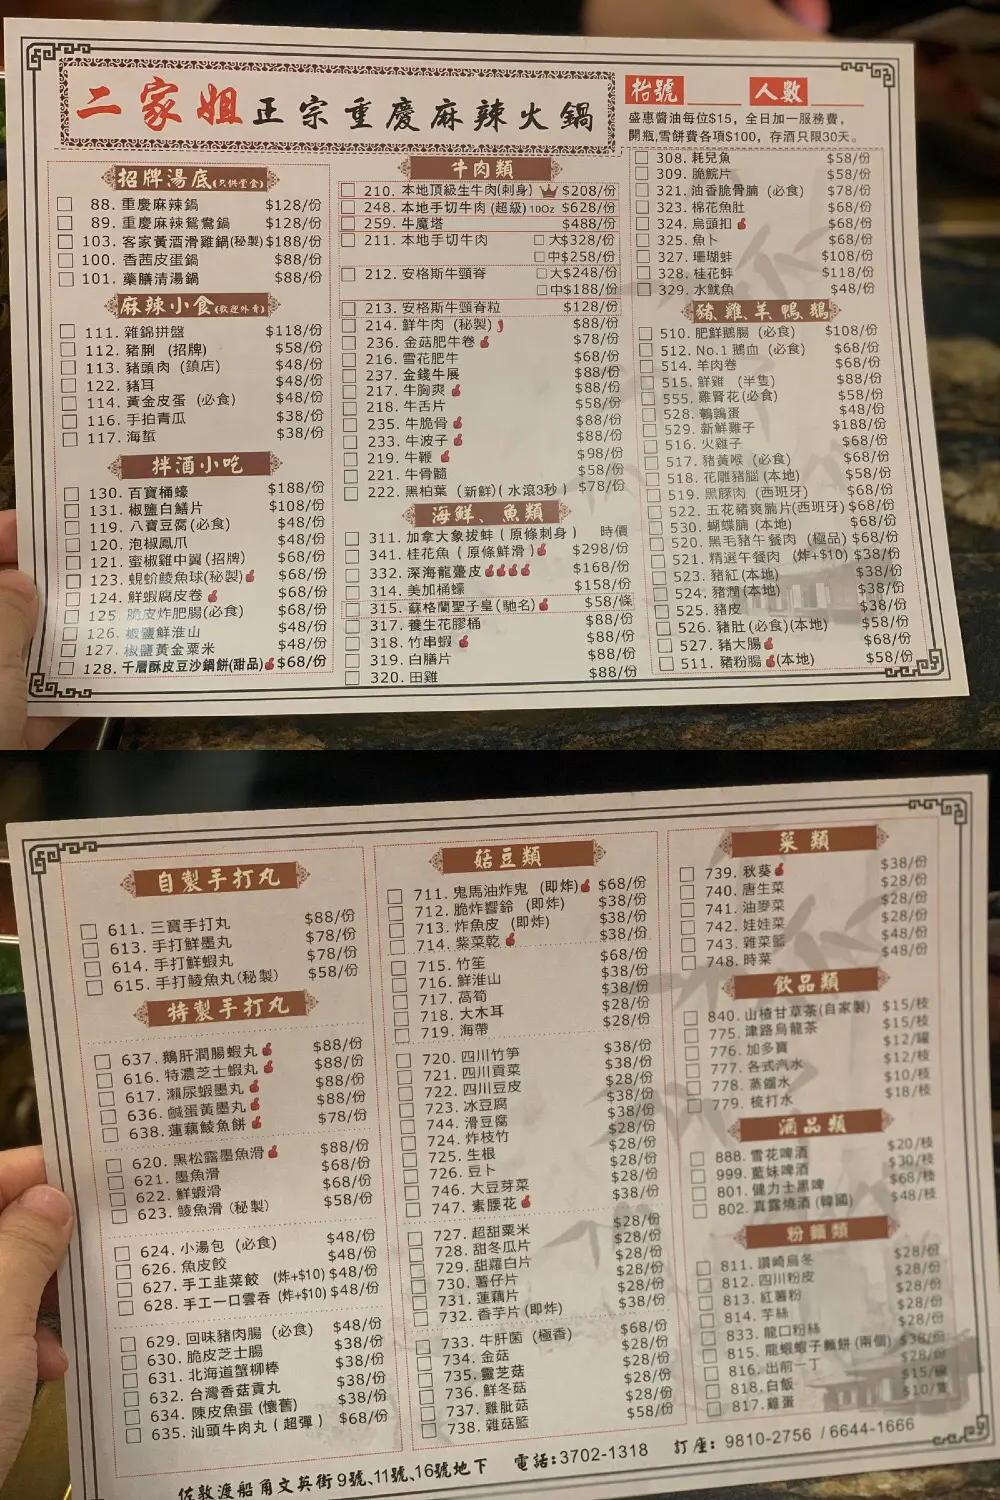 二家姐正宗重慶麻辣火鍋
枱號 人數
盛惠醬油每位$15，全日加一服務費，
開瓶,雪餅費各項$100，存酒只限30天。
招牌湯底(只供堂食)
88. 重慶麻辣鍋 $128/份
89. 重慶麻辣鴛鴦鍋 $128/份
103. 客家黃酒滑雞鍋(秘製) $188/份
100. 香茜皮蛋鍋 $88/份
101. 藥膳清湯鍋 $88/份
麻辣小食(歡迎外賣)
111. 雜錦拼盤 $118/份
112. 豬脷 (招牌) $58/份
113. 豬頭肉 (鎮店) $48/份
122. 豬耳 $48/份
114. 黃金皮蛋 (必食) $48/份
116. 手拍青瓜 $38/份
117. 海蜇 $38/份
拌酒小吃
130. 百寶桶蠔 $188/份
131. 椒鹽白鱔片 $108/份
119. 八寶豆腐(必食) $48/份
120. 泡椒鳳爪 $48/份
121. 蜜椒雞中翼 (招牌) $68/份
123. 蜆蚧鯪魚球(秘製) $68/份
124. 鮮蝦腐皮卷 $68/份
125. 脆皮炸肥腸(必食) $68/份
126. 椒鹽鮮淮山 $48/份
127. 椒鹽黃金粟米 $48/份
128. 千層酥皮豆沙鍋餅(甜品) $68/份
牛肉類
210. 本地頂級生牛肉(刺身) $208/份
248. 本地手切牛肉 (超級) 10Oz $628/份
259. 牛魔塔 $488/份
211. 本地手切牛肉 大$328/份
中$258/份
212. 安格斯牛頸脊 大$248/份
中$188/份
213. 安格斯牛頸脊粒 $128/份
214. 鮮牛肉 (秘製) $88/份
236. 金菇肥牛卷 $78/份
216. 雪花肥牛 $68/份
237. 金錢牛展 $88/份
217. 牛胸爽 $88/份
218. 牛舌片 $58/份
235. 牛脆骨 $88/份
233. 牛波子 $88/份
219. 牛鞭 $98/份
221. 牛骨髓 $58/份
222. 黑柏葉 (新鮮)(水滾3秒) $78/份
海鮮、魚類
311. 加拿大象拔蚌 (原條刺身) 時價
341. 桂花魚 (原條鮮滑) $298/份
332. 深海龍躉皮 $168/份
314. 美加桶蠔 $158/份
315. 蘇格蘭聖子皇 (馳名) $58/條
317. 養生花膠桶 $88/份
318. 竹串蝦 $88/份
319. 白膳片 $88/份
320. 田雞 $88/份
308. 耗兒魚 $58/份
309. 脆鯇片 $58/份
321. 油香脆骨腩 (必食) $78/份
323. 棉花魚肚 $68/份
324. 烏頭扣 $68/份
325. 魚卜 $68/份
327. 珊瑚蚌 $108/份
328. 桂花蚌 $118/份
329. 水魷魚 $48/份
豬、雞、羊、鴨、鵝
510. 肥鮮鵝腸 (必食) $108/份
512. No.1 鵝血 (必食) $68/份
514. 羊肉卷 $68/份
515. 鮮雞 (半隻) $88/份
555. 雞腎花(必食) $58/份
528. 鵪鶉蛋 $48/份
529. 新鮮雞子 $188/份
516. 火雞子 $68/份
517. 豬黃喉 (必食) $68/份
518. 花雕豬腦 (本地) $58/份
519. 黑豚肉 (西班牙) $68/份
522. 五花豬爽腩片(西班牙) $68/份
530. 蝴蝶腩 (本地) $68/份
520. 黑毛豬午餐肉 (極品) $68/份
521. 精選午餐肉 (炸+$10) $38/份
523. 豬紅(本地) $38/份
524. 豬潤(本地) $38/份
525. 豬皮 $38/份
526. 豬肚(必食)(本地) $58/份
527. 豬大腸 $68/份
511. 豬粉腸(本地) $58/份
自製手打丸
611. 三寶手打丸 $88/份
613. 手打鮮墨丸 $78/份
614. 手打鮮蝦丸 $78/份
615. 手打鯪魚丸(秘製) $58/份
特製手打丸
637. 鵝肝潤腸蝦丸 $88/份
616. 特濃芝士蝦丸 $88/份
617. 瀨尿蝦墨丸 $88/份
636. 鹹蛋黃墨丸 $88/份
638. 蓮藕鯪魚餅 $78/份
620. 黑松露墨魚滑 $88/份
621. 墨魚滑 $68/份
622. 鮮蝦滑 $68/份
623. 鯪魚滑 (秘製) $58/份
624. 小湯包 (必食) $48/份
626. 魚皮餃 $48/份
627. 手工韭菜餃 (炸+$10) $48/份
628. 手工一口雲吞 (炸+$10) $48/份
629. 回味豬肉腸 (必食) $48/份
630. 脆皮芝士腸 $38/份
631. 北海道蟹柳棒 $38/份
632. 台灣香菇貢丸 $38/份
634. 陳皮魚蛋 (懷舊) $38/份
635. 汕頭牛肉丸 (超彈) $68/份
菇豆類
711. 鬼馬油炸鬼 (即炸) $68/份
712. 脆炸響鈴 (即炸) $38/份
713. 炸魚皮 (即炸) $38/份
714. 紫菜乾 $38/份
715. 竹笙 $68/份
716. 鮮淮山 $38/份
717. 萵筍 $38/份
718. 大木耳 $28/份
719. 海帶 $28/份
720. 四川竹笋 $38/份
721. 四川貢菜 $38/份
722. 四川豆皮 $38/份
723. 冰豆腐 $38/份
744. 滑豆腐 $28/份
724. 炸枝竹 $38/份
725. 生根 $28/份
726. 豆卜 $28/份
746. 大豆芽菜 $28/份
747. 素腰花 $38/份
727. 超甜粟米 $28/份
728. 甜冬瓜片 $28/份
729. 甜蘿白片 $28/份
730. 薯仔片 $28/份
731. 蓮藕片 $28/份
732. 香芋片(即炸) $38/份
733. 牛肝菌 (極香) $68/份
734. 金菇 $28/份
735. 靈芝菇 $28/份
736. 鮮冬菇 $28/份
737. 雞肶菇 $28/份
738. 雜菇籃 $58/份
菜類
739. 秋葵 $38/份
740. 唐生菜 $28/份
741. 油麥菜 $28/份
742. 娃娃菜 $28/份
743. 雜菜籃 $48/份
748. 時菜 $48/份
飲品類
840. 山楂甘草茶(自家製) $15/枝
775. 津路烏龍茶 $15/枝
776. 加多寶 $12/罐
777. 各式汽水 $12/枝
778. 蒸餾水 $10/枝
779. 梳打水 $18/枝
酒品類
888. 雪花啤酒 $20/枝
999. 藍妹啤酒 $30/枝
801. 健力士黑啤 $68/枝
802. 真露燒酒 (韓國) $48/枝
粉麵類
811. 讚崎烏冬 $28/份
812. 四川粉皮 $28/份
813. 紅薯粉 $28/份
814. 芋絲 $28/份
833. 龍口粉絲 $28/份
815. 龍蝦蝦子麵餅 (兩個) $38/份
816. 出前一丁 $28/份
818. 白飯 $15/碗
817. 雞蛋 $10/隻
佐敦渡船角文英街9號、11號、16號地下 電話:3702-1318 訂座: 9810-2756 / 6644-1666